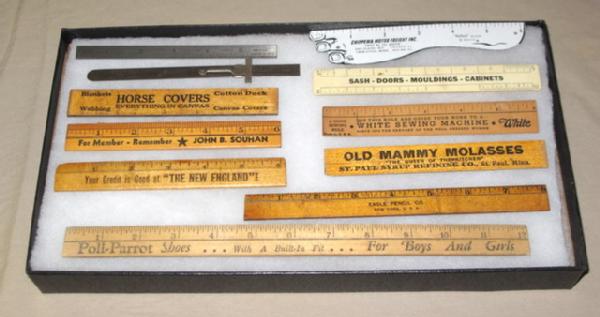 CHIPPEWA MOTOR FREIGHT INC.
SASH - DOORS - MOULDINGS - CABINETS
Blankets HORSE COVERS Cotton Duck
Webbing EVERYTHING IN CANVAS Canvas Covers
WHITE SEWING MACHINE White
For Member - Remember ★ JOHN B. SOUHAN
OLD MAMMY MOLASSES
ST. PAUL SYRUP REFINING CO., St. Paul, Minn.
Your Credit is Good at "THE NEW ENGLAND"!
EAGLE PENCIL CO.
NEW YORK, U.S.A.
1 2 3 4 5 6 7 8 9 10 11 12
Poll-Parrot Shoes . . . With A Built-In Fit . . . For Boys And Girls